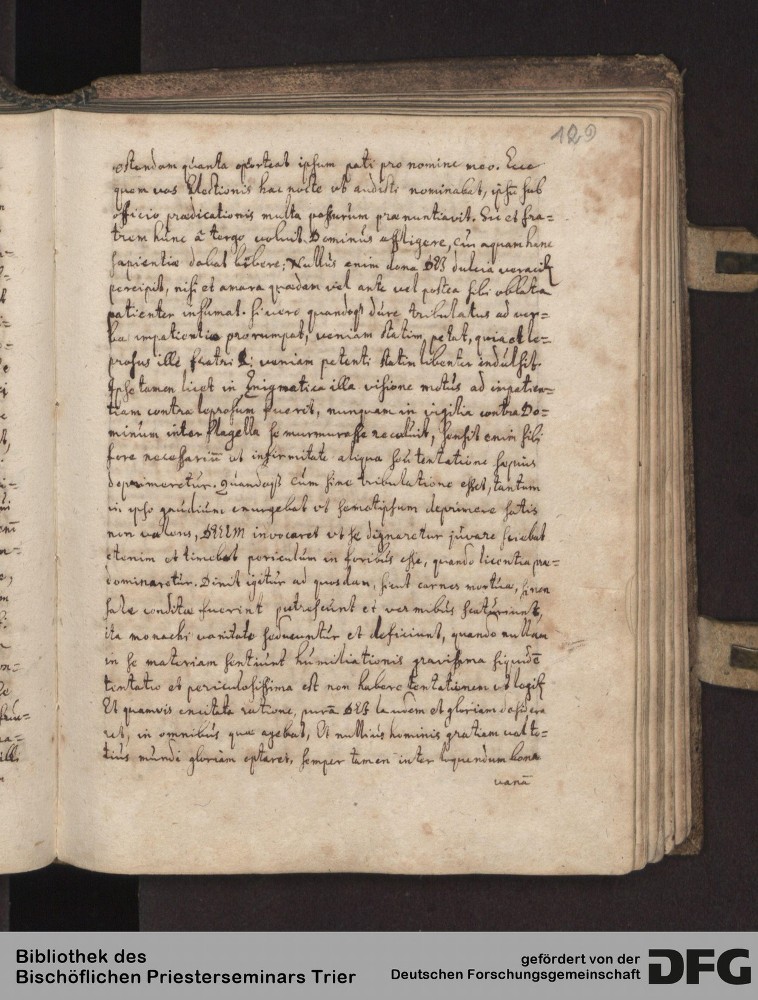 129
ostendam quanta oporteat ipsum pati pro nomine meo. Ecce
quem vas Electionis hac nocte ut audisti nominabat, ipsū sub
officio prædicationis multa passurum prænuntiavit. Sic et fra=
trem hunc â tergo voluit Dominus affligere, cui aquam hanc
sapientiæ dabat bibere; Nullus enim dona DEI dulcia veracit
percipit, nisi et amara quædam vel ante vel postea sibi oblata
patienter insumat. Si vero quandoq dure tribulatus ad ver=
ba impatientiæ prorumpat, veniam statim petat, quia et le=
prosus ille fratri veniam petenti statim libenter indulsit.
Ipse tamen licet in Enigmatica illa visione motus ad impatien=
tiam contra leprosum fuerit, nunquam in vigilia contra Do=
minum inter flagella se murmurasse recoluit, sensit enim sibi
fore necessariū ut infirmitate aliqua seu tentatione sæpius
deprimeretur. Quandoq cum sine tribulatione esset, tantum
in ipso gaudium emergebat ut semetipsum deprimere satis
non valens, DEUM invocaret ut se dignaretur juvare sciebat
etenim et timebat periculum in foribus esse, quando licentia præ=
dominaretur. Dixit igitur ad quosdam, sicut carnes mortuæ, si non
sale conditæ fuerint putrescunt et vermibus scaturiunt,
ita monachi vanitate seducuntur et deficiunt, quando nullam
in se materiam sentiunt humiliationis gravissima siquidē
tentatio et periculosissima est non habere tentationem
Et quamvis excitata ratione, purā DEI laudem et gloriam desidera
ret, in omnibus quæ agebat, Et nullius hominis gratiam vel to=
tius mundi gloriam optaret, semper tamen inter loquendum bona
vanā
Bibliothek des
Bischöflichen Priesterseminars Trier
gefördert von der
Deutschen Forschungsgemeinschaft
DFG